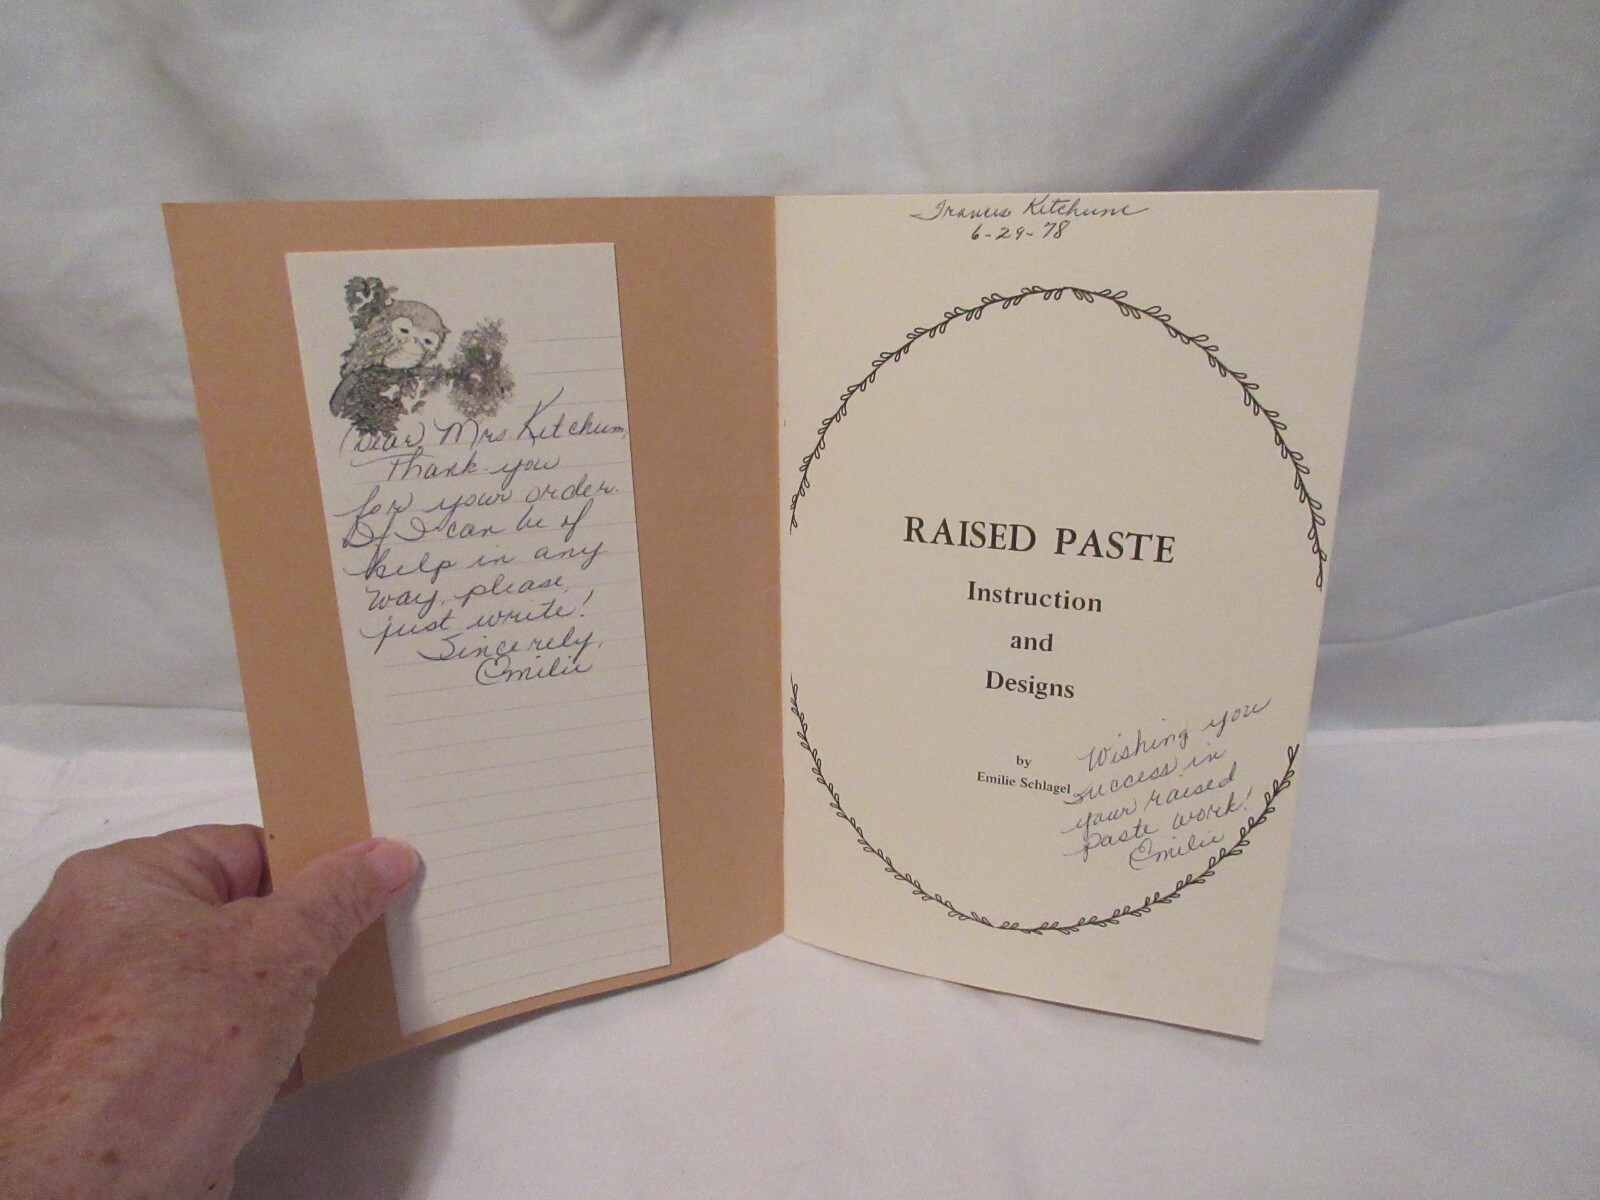 Dear Mrs. Ketchum,
Thank you
for your order.
If I can be of
help in any
way, please
just write!
Sincerely,
Emilie
Francis Ketchum
6-29-78
RAISED PASTE
Instruction
and
Designs
by
Emilie Schlagel
Wishing you
success in
your raised
paste work!
Emilie